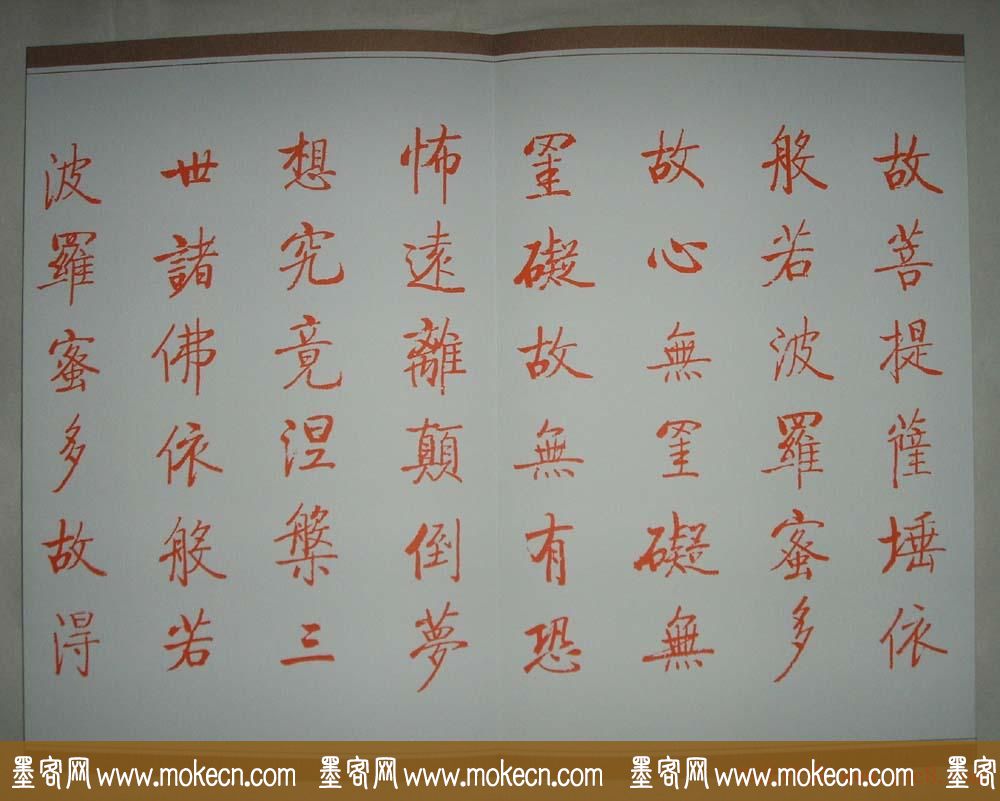 故菩提薩埵依
般若波羅蜜多
故心無罣礙無
罣礙故無有恐
怖遠離顛倒夢
想究竟涅槃三
世諸佛依般若
波羅蜜多故得
墨客网 www.mokecn.com 墨客网 www.mokecn.com 墨客网 www.mokecn.com 墨客